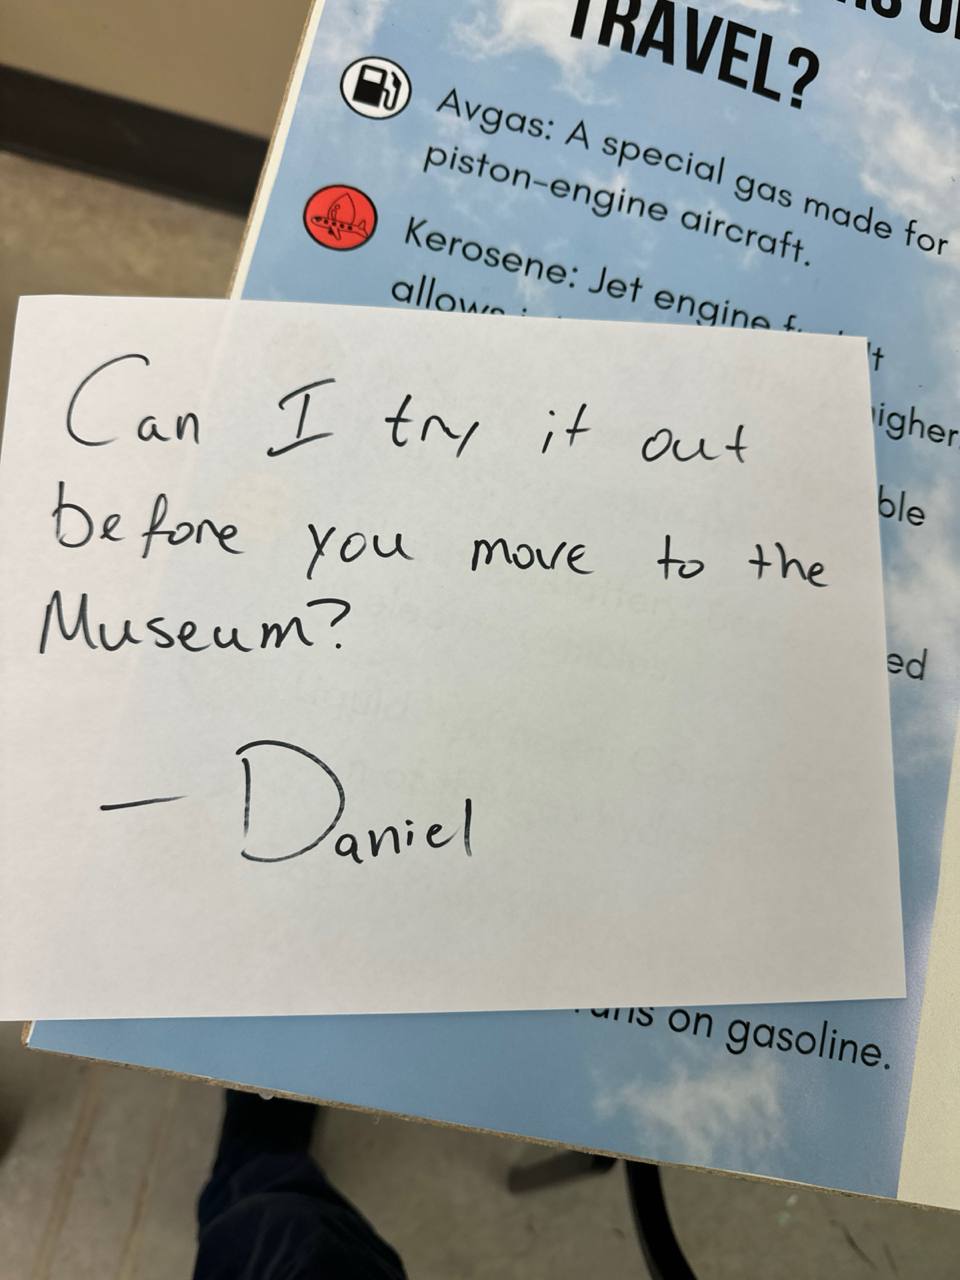 TRAVEL?
Avgas: A special gas made for
piston-engine aircraft.
Kerosene: Jet engine
Can I try it out
before you move to the
Museum?
— Daniel
on gasoline.